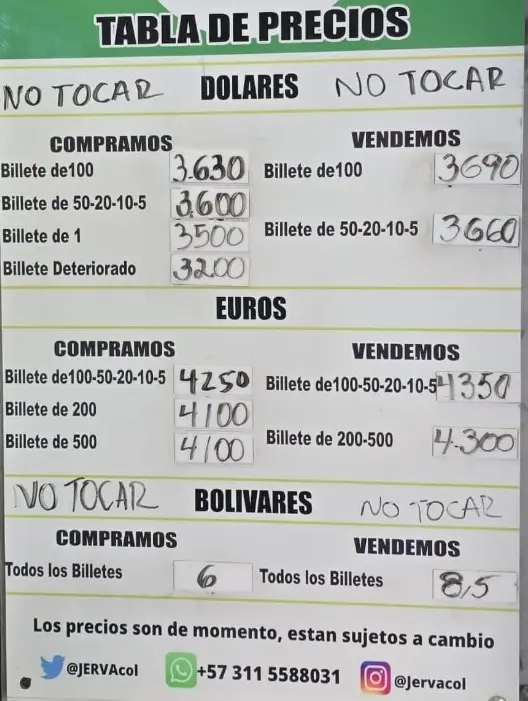 TABLA DE PRECIOS
NO TOCAR DOLARES NO TOCAR
COMPRAMOS VENDEMOS
Billete de100 3.630 Billete de100 3690
Billete de 50-20-10-5 3600
Billete de 50-20-10-5 3660
Billete de 1 3500
Billete Deteriorado 3200
EUROS
COMPRAMOS VENDEMOS
Billete de100-50-20-10-5 4250 Billete de100-50-20-10-5 4350
Billete de 200 4100
Billete de 500 4100 Billete de 200-500 4.300
NO TOCAR BOLIVARES NO TOCAR
COMPRAMOS VENDEMOS
Todos los Billetes 6 Todos los Billetes 8,5
Los precios son de momento, estan sujetos a cambio
@JERVAcol +57 311 5588031 @Jervacol